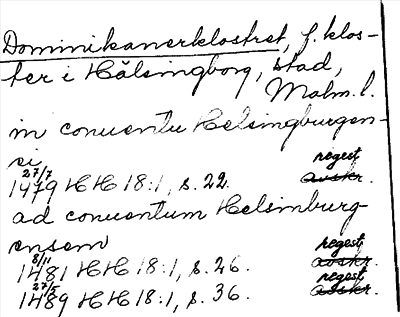 Dominikanerklostret, f. klos-
ter i Hälsingborg, stad,
Malm. l.
in conuentu Helsingburgen-
si
regest
27/7
1479 HH 18:1, s. 22. avskr.
ad conuentum Helsimburg-
ensem
regest
8/11
1481 HH 18:1, s. 26. avskr.
regest
27/5
1489 HH 18:1, s. 36. avskr.